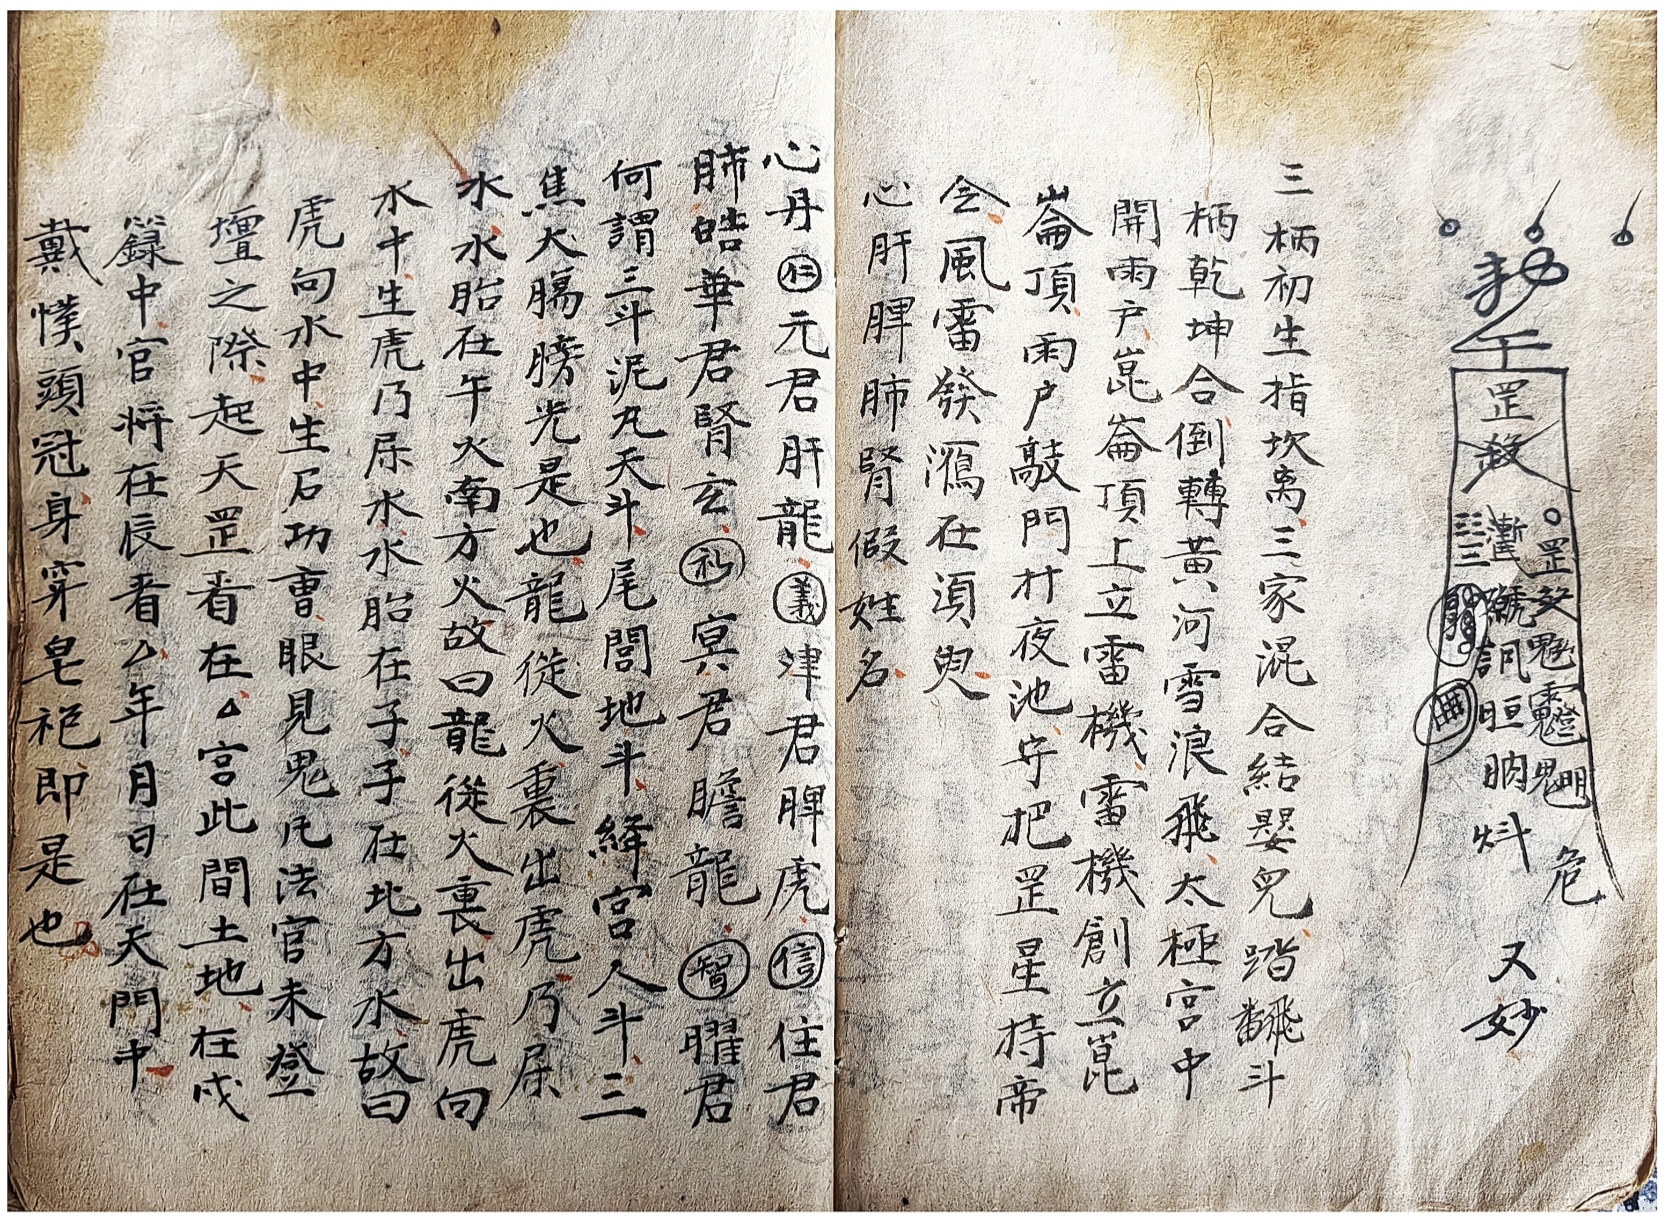 罡煞
罡煞魁
危
又妙
三柄初生指坎离三家混合結嬰兒踏翻斗
柄乾坤合倒轉黃河雪浪飛太極宮中
開雨户崑崙頂上立雷機雷機創立崑
崙頂雨户敲開廾夜池守把罡星持帝
令風雷發𤁋在須臾
心肝脾肺腎假姓名
心丹仁元君肝龍義津君脾虎信住君
肺皓華君腎玄礼冥君膽龍智曜君
何謂三斗泥丸天斗尾閭地斗絳宮人斗三
焦大腸膀光是也龍從火裏出虎乃尿
水水胎在午火南方火故曰龍從火裏出虎向
水中生虎乃尿水水胎在子子在北方水故曰
虎向水中生石功曹眼見鬼凡法官未登
壇之際起天罡看在△宮此間土地在戌
籙中官將在辰看△年月日在天門中
戴幞頭冠身穿皂袍即是也